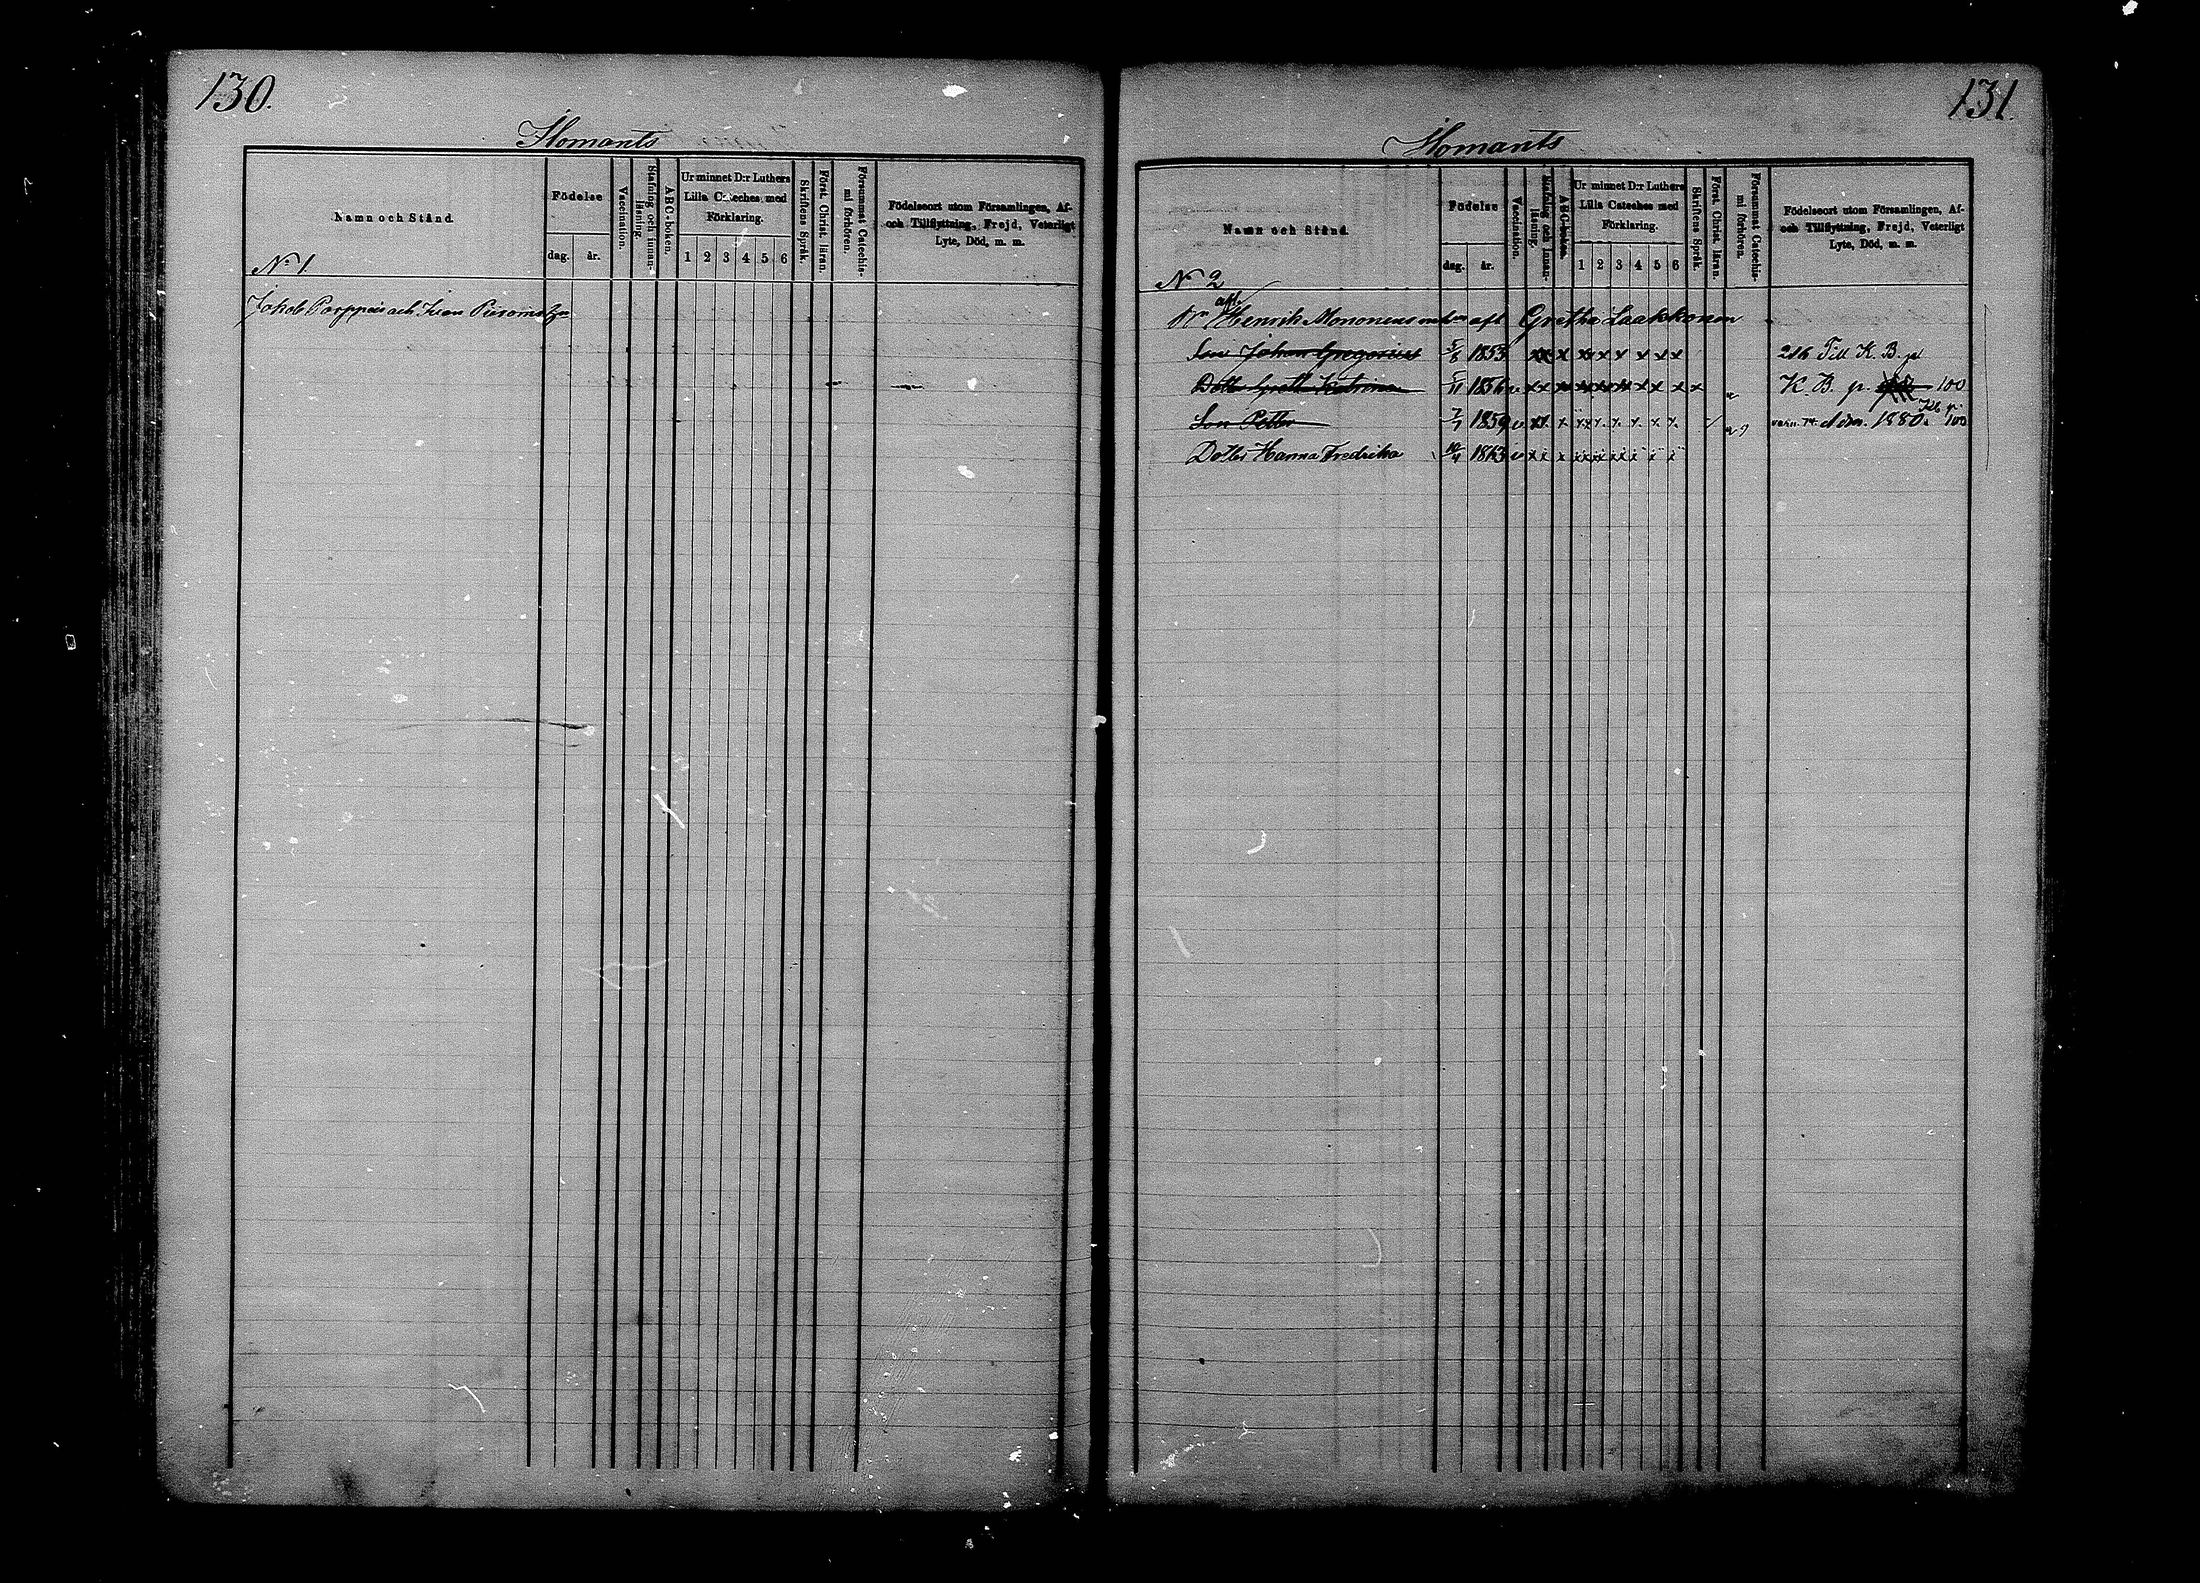 130.
Ilomants
Namn och Stånd.
Födelse
dag.
år.
Vaccination.
Stafning och innan-
läsning.
ABC-boken.
Ur minnet D:r Luthers
Lilla Cateches med
Förklaring.
1 2 3 4 5 6
Skriftens Språk.
Först. Christ. läran.
Försummat Catechis-
mi förhören.
Födelseort utom Församlingen, Af-
och Tillflyttning, Frejd, Veterligt
Lyte, Död, m. m.
N:o 1
Jakob och Ivan
131.
Ilomants
Namn och Stånd.
Födelse
dag.
år.
Vaccination.
Stafning och innan-
läsning.
ABC-boken.
Ur minnet D:r Luthers
Lilla Cateches med
Förklaring.
1 2 3 4 5 6
Skriftens Språk.
Först. Christ. läran.
Försummat Catechis-
mi förhören.
Födelseort utom Församlingen, Af-
och Tillflyttning, Frejd, Veterligt
Lyte, Död, m. m.
N 2
afl.
Henrik Mononens afl Gretha Laakkonen
Son Johan Gregorius 5/8 1853 x x x x x x x x x 216 Till K. B. p
Dott Greth Katrina 5/11 1856 v x x x x x x x x x x K. B. p. 100
Son Petter 7/7 1859 v x x x x x x x x x 1880. Kb p. 100
Dotter Hanna Fredrika 1863 v x x x x x x x x x